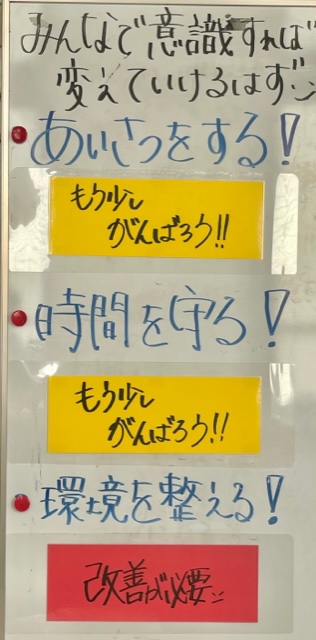 みんなで意識すれば
変えていけるはず
あいさつをする！
もう少し
がんばろう!!
時間を守る！
もう少し
がんばろう!!
環境を整える！
改善が必要